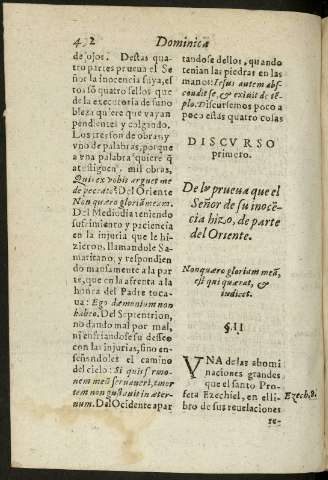 432 Dominica
de jojo. Destas qua
tro partes prueua el Se
ñor la inocencia suya, el
tos sõ quatro sellos que
de la executoria de su no
bleza quiere que vayan
pendientes y colgando.
Los tres son de obras, y
vno de palabras, porque
a vna palabra quiere q̃
atestiguen mil obras,
Quis ex vobis arguet me
de peccato? Del Oriente
Non quæro gloriã meam.
Del Mediodia teniendo
sufrimiento y paciencia
en la injuria que le hi-
zieron, llamandole Sa-
maritano, y respondien
do mansamente a la par
te, que en la afrenta a la
honra del Padre toca-
ua: Ego dæmonium non
habeo. Del Septentrion,
no dando mal por mal,
ni enfriandose su desseo
con las injurias, sino en-
señandoles el camino
del cielo: Si quis sermo-
nem meũ seruauerit, mor
tem non gustauit in æter
num. Del Ocidente apar
tandose dellos, quando
tenian las piedras en las
manos: Iesus autem abs-
condit se, & exiuit de tẽ-
plo. Discursemos poco a
poco estas quatro colas
DISCVRSO
primero.
De la prueua que el
Señor de su inocẽ-
cia hizo, de parte
del Oriente.
Non quæro gloriam meã,
est qui quærat, &
iudicet.
§. II
VNA de las abomi
naciones grandes
que el santo Pro-
feta Ezechiel, en el li-
bro de sus reuelaciones
Ezech. 8.
re-